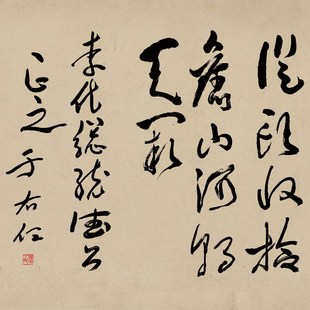 從頭收拾
舊山河朝
天闕
李代總統德公
正之 于右任